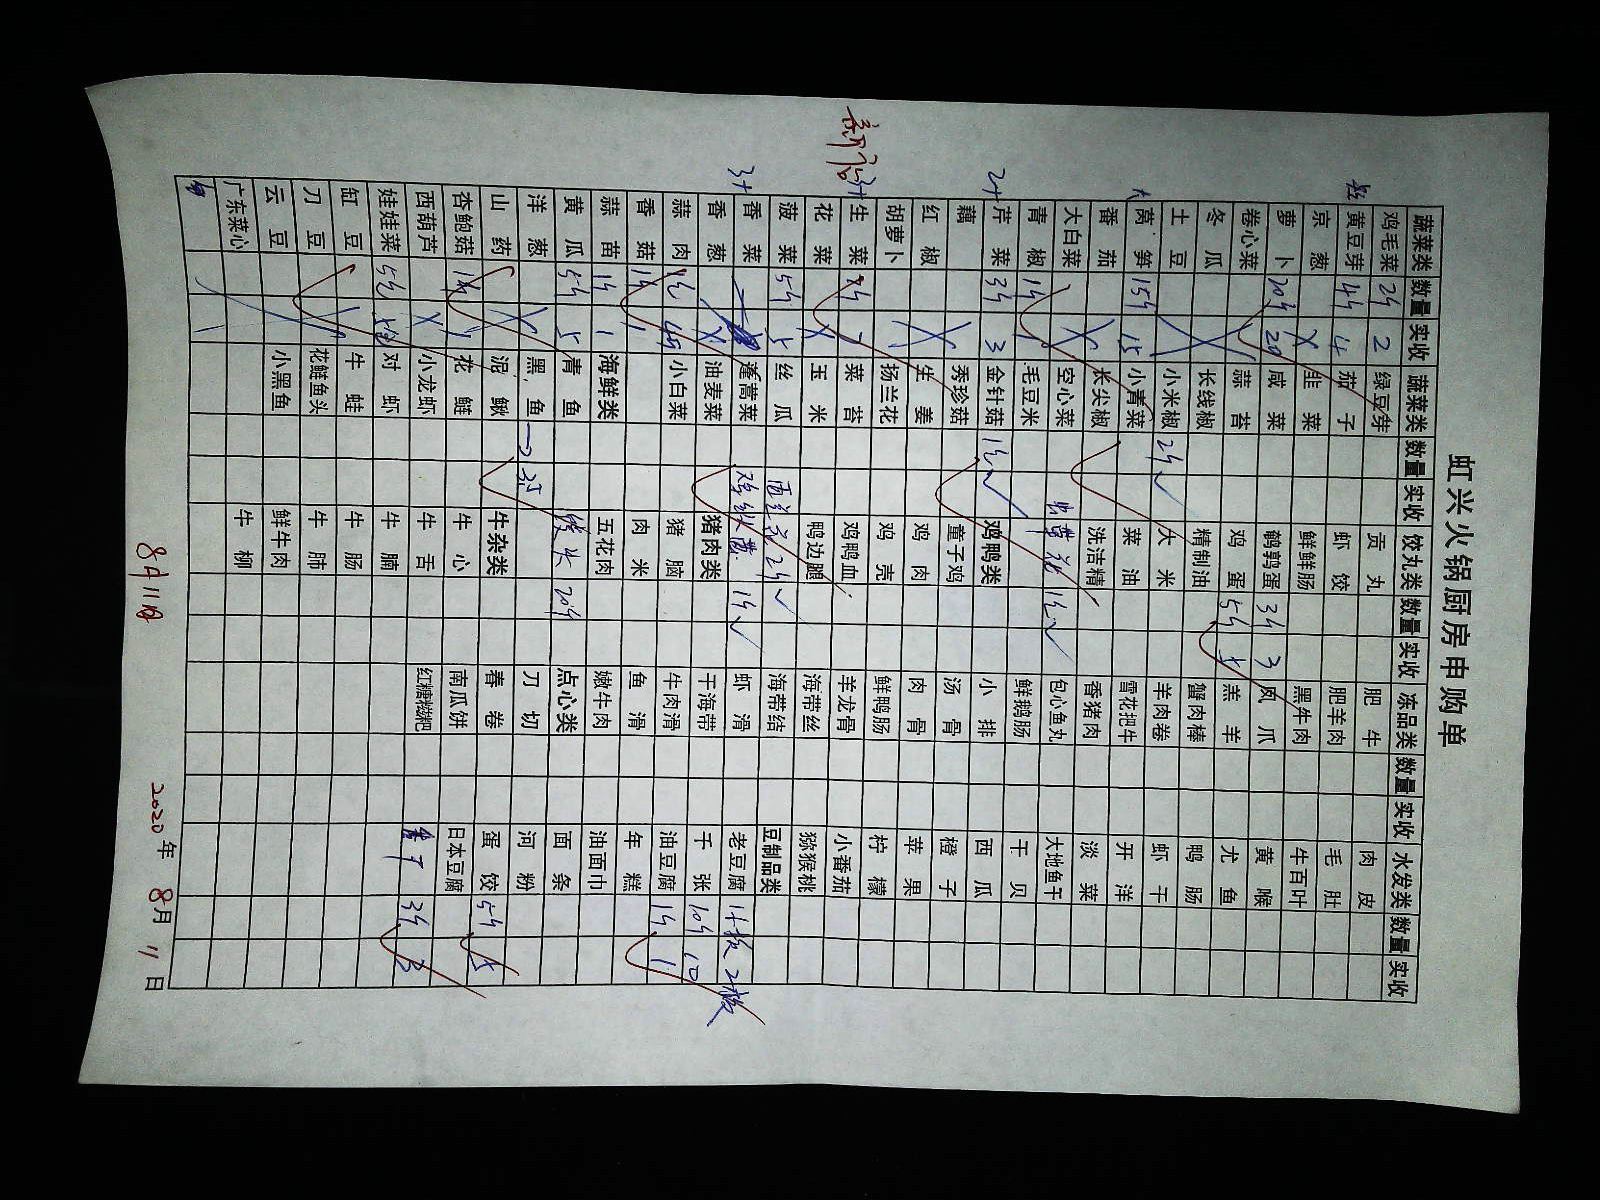 虹兴火锅厨房申购单
蔬菜类 数量 实收 蔬菜类 数量 实收 饺丸类 数量 实收 冻品类 数量 实收 水发类 数量 实收
鸡毛菜 2斤 2 绿豆芽 贡丸 肥牛 肉皮
黄豆芽 4斤 4 茄子 虾饺 肥羊肉 毛肚
京葱 X 韭菜 鲜鲜肠 黑牛肉 牛百叶
萝卜 20斤 20 咸菜 鹌鹑蛋 3斤 3 凤爪 黄喉
卷心菜 蒜苔 鸡蛋 5斤 羔羊 尤鱼
冬瓜 长线椒 精制油 蟹肉棒 鸭肠
土豆 小米椒 2斤 ✓ 大米 羊肉卷 虾干
大 莴笋 15斤 15 小青菜 菜油 雪花把牛 开洋
番茄 长尖椒 洗洁精 香猪肉 淡菜
大白菜 空心菜 包心鱼丸 大地鱼干
青椒 1斤 毛豆米 鲜鹅肠 干贝
芹菜 3斤 3 金针菇 1斤 ✓ 鸡鸭类 小排 西瓜
藕 秀珍菇 童子鸡 汤骨 橙子
红椒 生姜 鸡肉 肉骨 苹果
胡萝卜 扬兰花 鸡壳 鲜鸭肠 柠檬
生菜 菜苔 鸡鸭血 羊龙骨 小番茄
花菜 X 玉米 鸭边腿 海带丝 猕猴桃
菠菜 5斤 5 丝瓜 西兰花 2斤 ✓ 海带结 豆制品类
香菜 蓬蒿菜 1斤 ✓ 虾滑 老豆腐 1板 2板
香葱 X 油麦菜 猪肉类 干海带 千张 10斤 10
蒜肉 小白菜 猪脑 牛肉滑 油豆腐 1斤 1
香菇 1斤 1 肉米 鱼滑 年糕
蒜苗 1斤 1 海鲜类 五花肉 嫩牛肉 油面巾
黄瓜 5斤 5 青鱼 20斤 点心类 面条
洋葱 X 黑鱼 → 35 刀切 河粉
山药 泥鳅 牛杂类 春卷 蛋饺 5斤 5
杏鲍菇 1斤 1 花鲢 牛心 南瓜饼 日本豆腐
西葫芦 X 小龙虾 牛舌 红糖糍粑 3斤 3
娃娃菜 对虾 牛腩
缸豆 牛蛙 牛肠
刀豆 花鲢鱼头 牛肺
云豆 小黑鱼 鲜牛肉
广东菜心 牛柳
8月11日
2020年 8月 11日